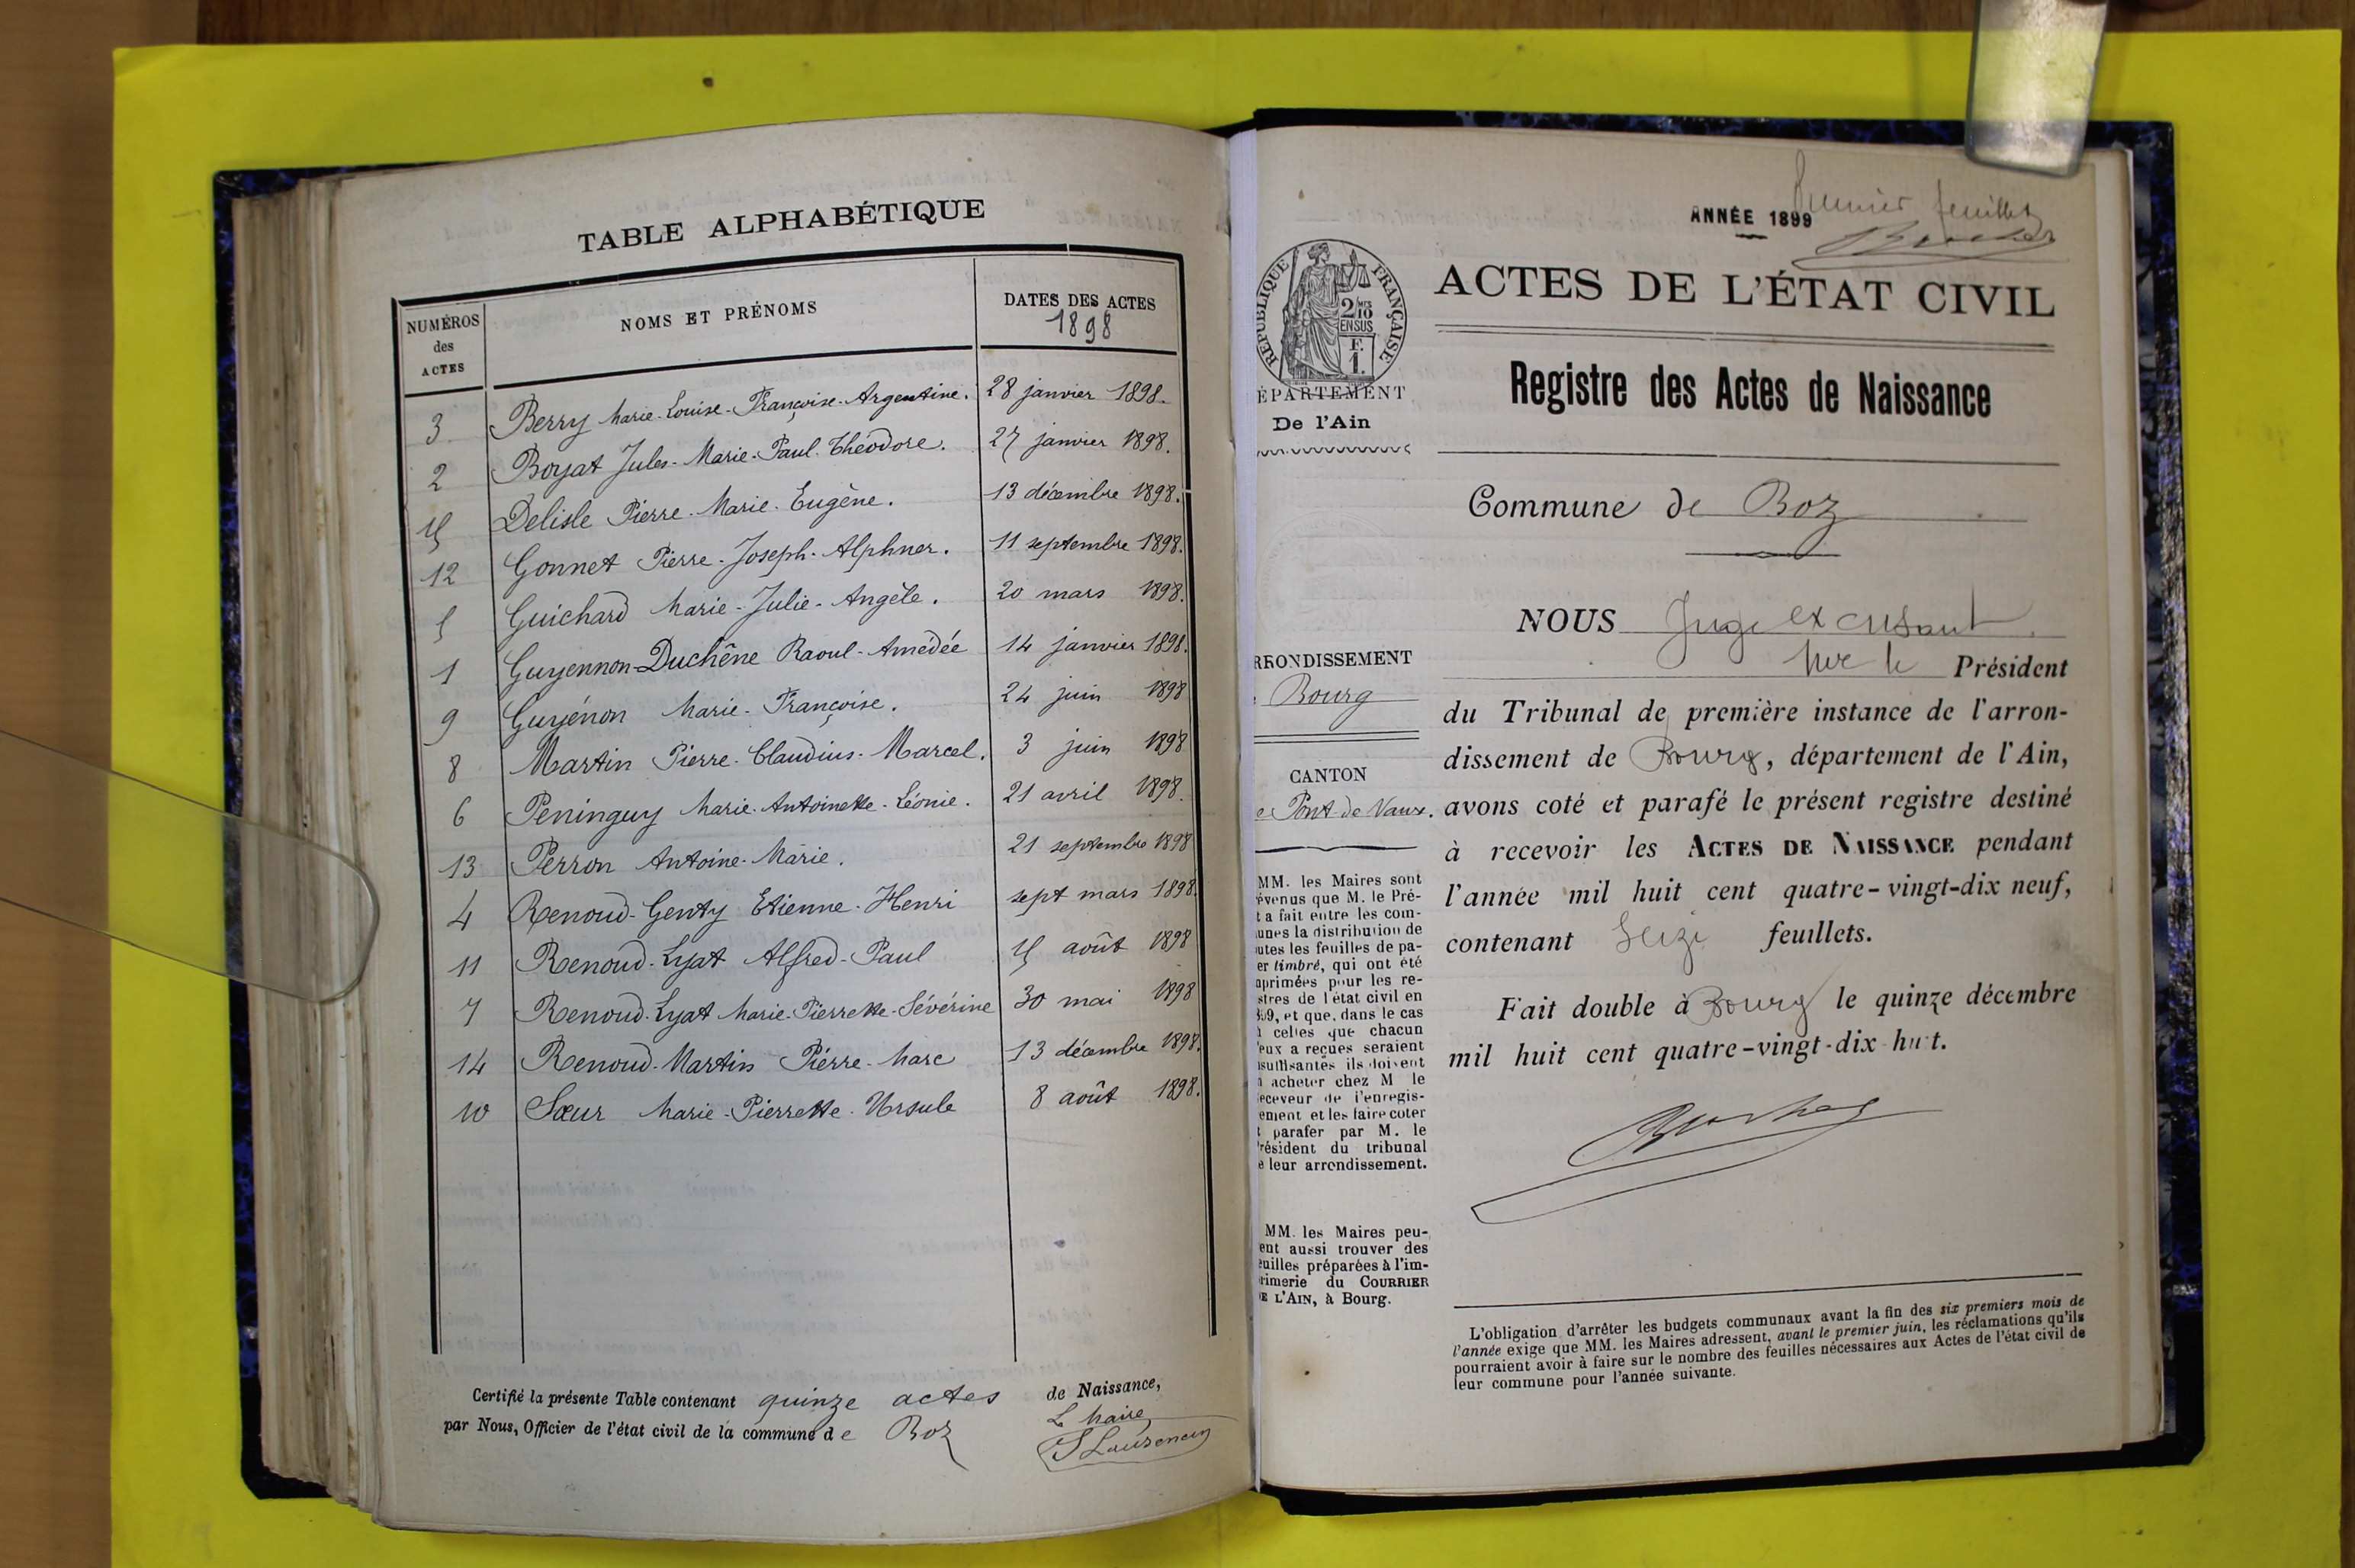 TABLE ALPHABÉTIQUE
NUMÉROS des ACTES
NOMS ET PRÉNOMS
DATES DES ACTES
1898
3 Berry Marie-Louise-Françoise-Argentine. 28 janvier 1898.
2 Boyat Jules-Marie-Paul-Théodore. 27 janvier 1898.
15 Delisle Pierre-Marie-Eugène. 13 décembre 1898.
12 Gonnet Pierre-Joseph-Alphner. 11 septembre 1898.
5 Guichard Marie-Julie-Angèle. 20 mars 1898.
1 Guyennon-Duchêne Raoul-Amédée 14 janvier 1898.
9 Guyénon Marie-Françoise. 24 juin 1898
8 Martin Pierre-Claudius-Marcel. 3 juin 1898
6 Peninguy Marie-Antoinette-Léonie. 21 avril 1898.
13 Perron Antoine-Marie. 21 septembre 1898
4 Renoud-Genty Etienne-Henri sept mars 1898.
11 Renoud-Lyat Alfred-Paul 15 août 1898
7 Renoud-Lyat Marie-Pierrette-Sévérine 30 mai 1898
14 Renoud-Martin Pierre-Marc 13 décembre 1898.
10 Sœur Marie-Pierrette-Ursule 8 août 1898.
Certifié la présente Table contenant quinze actes de Naissance,
par Nous, Officier de l'état civil de la commune de Boz
L Maire
ANNÉE 1899
Premier feuillet
RÉPUBLIQUE FRANÇAISE
2/10 EN SUS
F. 1.
ÉPARTEMENT
De l'Ain
RRONDISSEMENT
Bourg
CANTON
e Pont-de-Vaux.
MM. les Maires sont
évenus que M. le Pré-
t a fait entre les com-
unes la distribution de
utes les feuilles de pa-
er timbré, qui ont été
primées pour les re-
stres de l'état civil en
99, et que, dans le cas
celles que chacun
'eux a reçues seraient
nsuffisantes ils doivent
acheter chez M le
eceveur de l'enregis-
ement et les faire coter
t parafer par M. le
résident du tribunal
e leur arrondissement.
MM. les Maires peu-
ent aussi trouver des
euilles préparées à l'im-
rimerie du COURRIER
E L'AIN, à Bourg.
ACTES DE L'ÉTAT CIVIL
Registre des Actes de Naissance
Commune de Boz
NOUS Juge excusant
Mr le Président
du Tribunal de première instance de l'arron-
dissement de Bourg, département de l'Ain,
avons coté et parafé le présent registre destiné
à recevoir les ACTES DE NAISSANCE pendant
l'année mil huit cent quatre-vingt-dix neuf,
contenant Seize feuillets.
Fait double à Bourg le quinze décembre
mil huit cent quatre-vingt-dix-huit.
L'obligation d'arrêter les budgets communaux avant la fin des six premiers mois de
l'année exige que MM. les Maires adressent, avant le premier juin, les réclamations qu'ils
pourraient avoir à faire sur le nombre des feuilles nécessaires aux Actes de l'état civil de
leur commune pour l'année suivante.